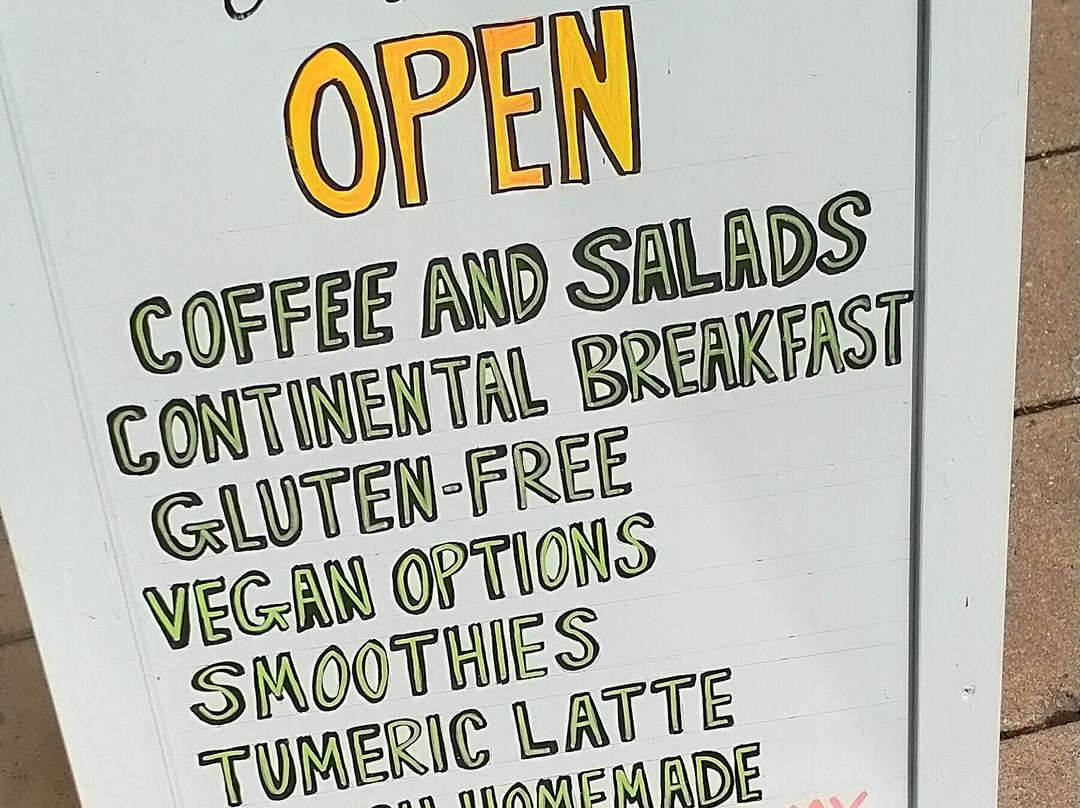 OPEN
COFFEE AND SALADS
CONTINENTAL BREAKFAST
GLUTEN-FREE
VEGAN OPTIONS
SMOOTHIES
TUMERIC LATTE
HOMEMADE